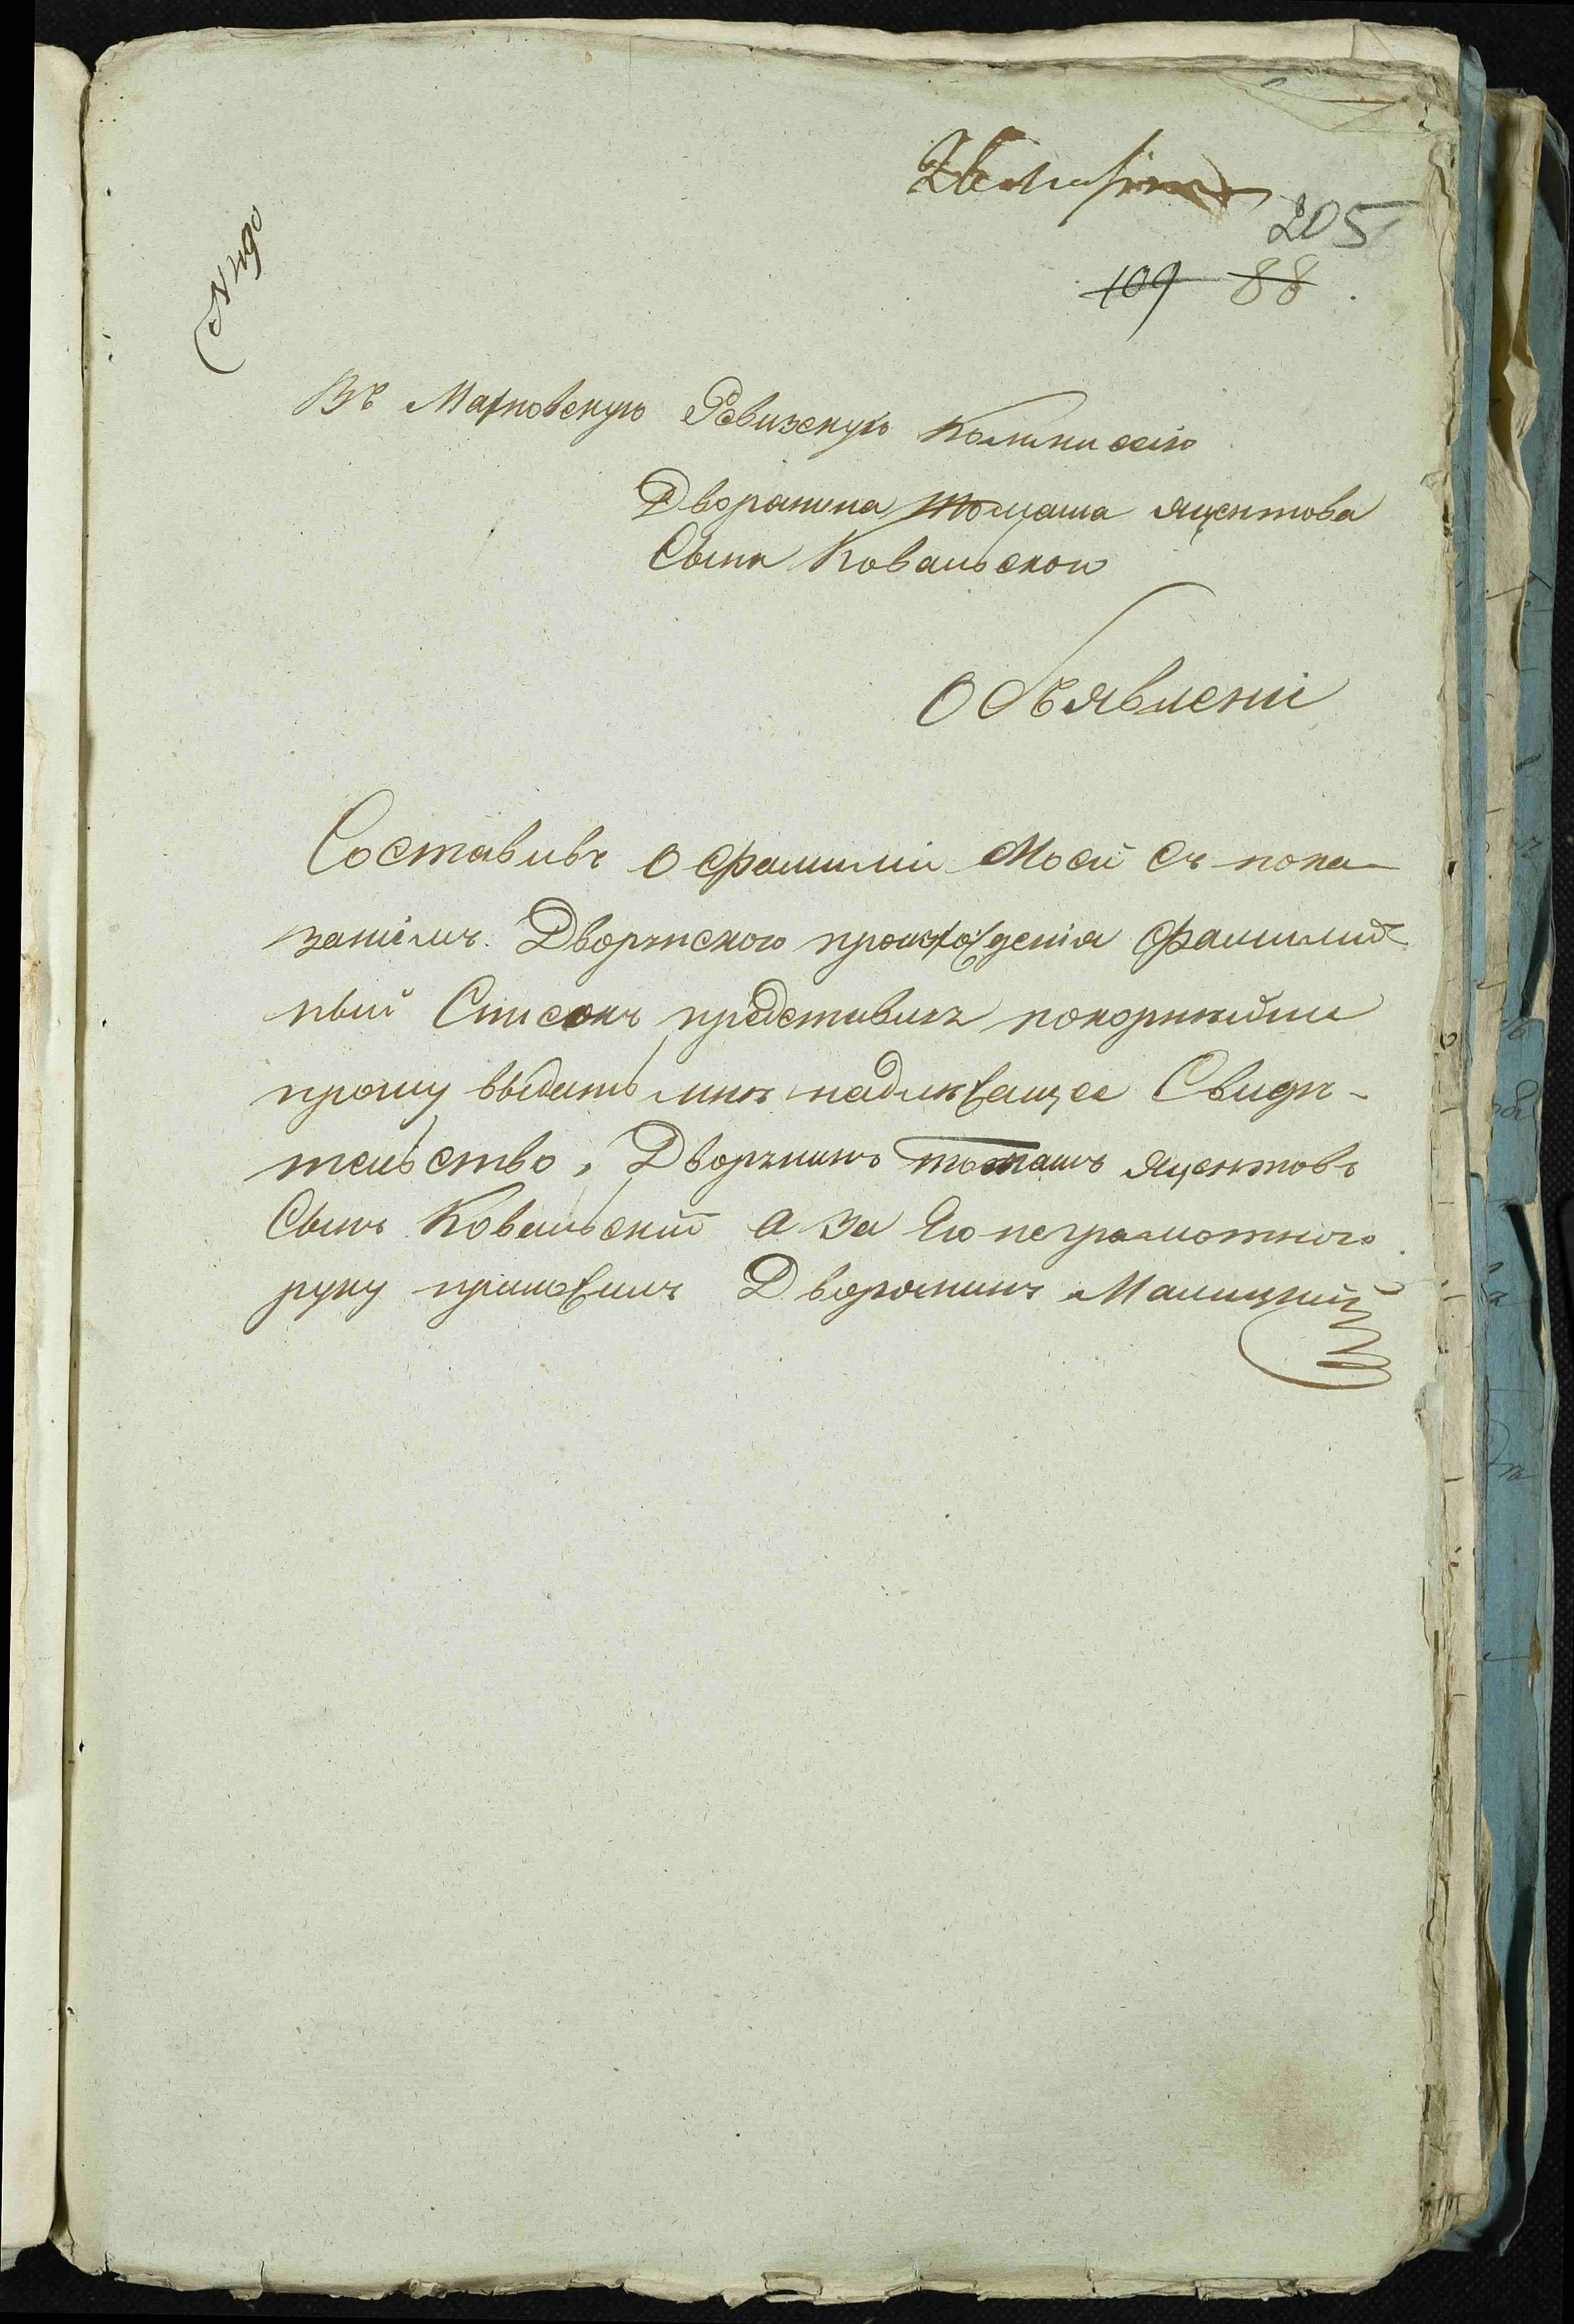 205
109 88
N 490
Въ Махновскую Ревизскую Коммиссію
Дворянина Томаша Яцентова
Сына Ковальского
Объявлени
Составивъ о фамиліи Моей съ пока-
заніемъ Дворянского происхожденія фамилий
ный Списокъ представихъ покорнейши
прошу выдать мнѣ надлежащее Свидѣ-
тельство, Дворянинъ томашъ Яцентовъ
Сынъ Ковальскій а за Его неграмотного
руку приложилъ Дворянинъ Малицкий